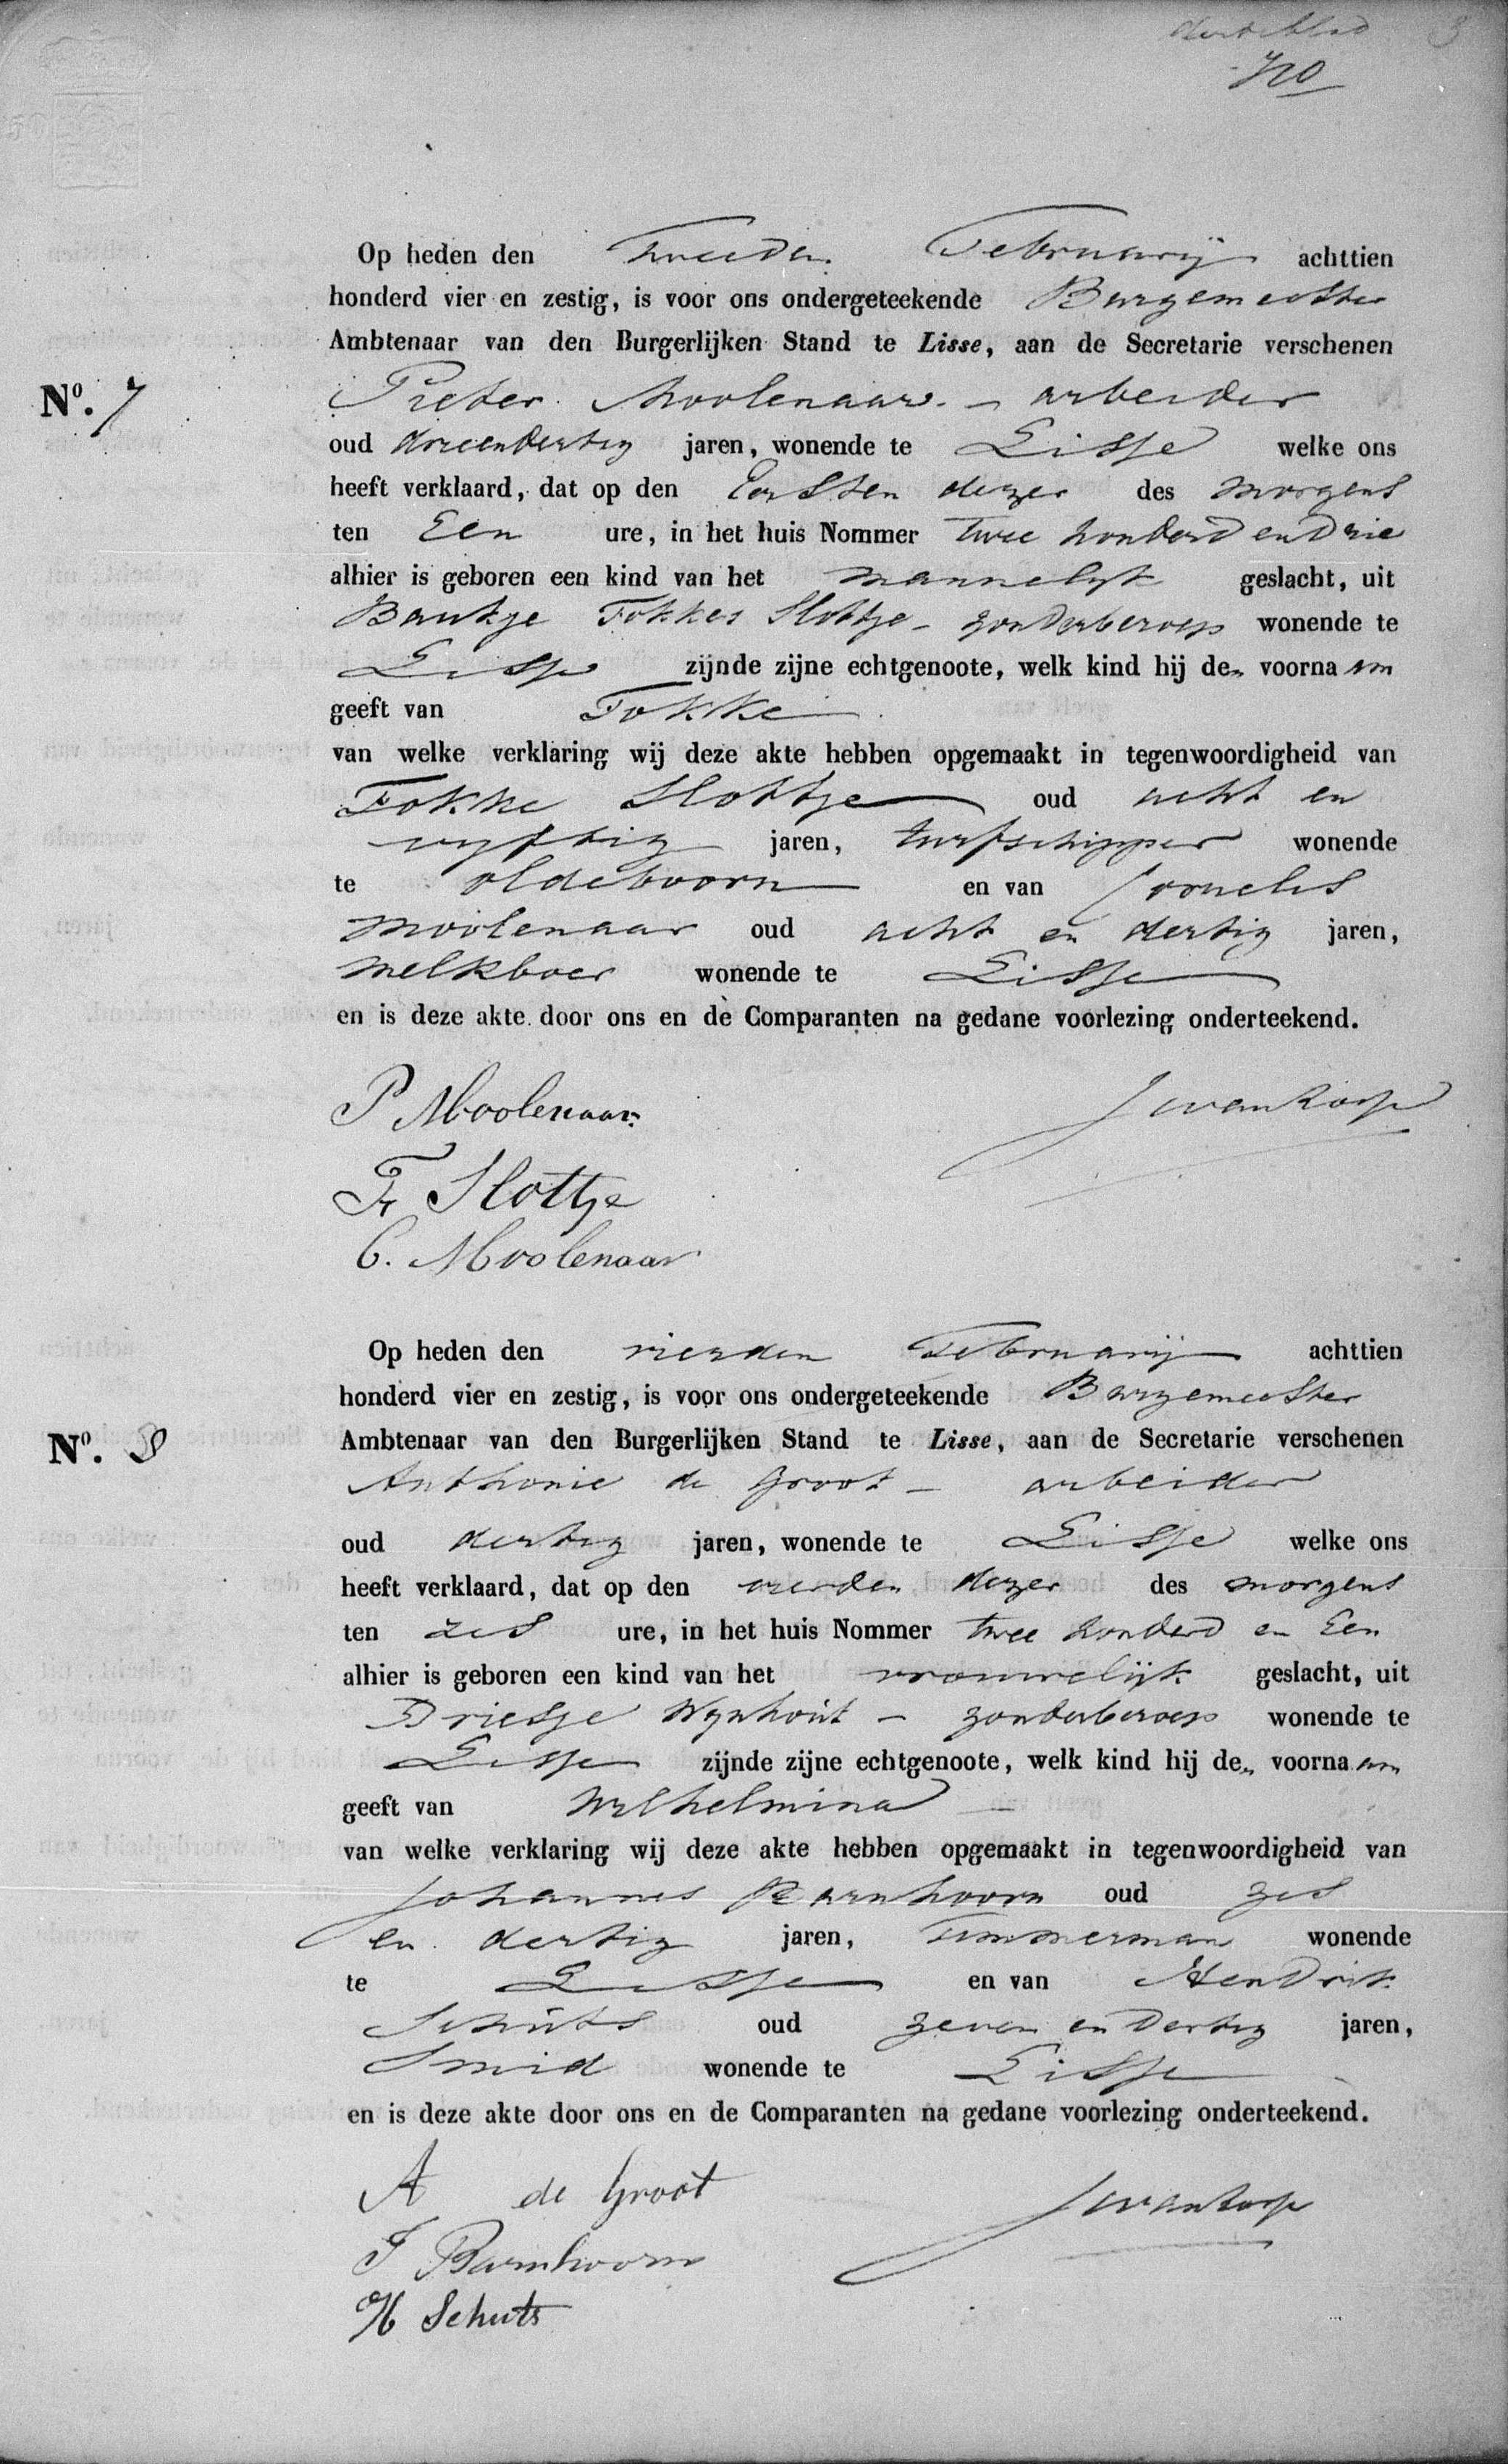 derde blad 3
Op heden den Tweeden Februarij achttien
honderd vier en zestig, is voor ons ondergeteekende Burgemeester
Ambtenaar van den Burgerlijken Stand te Lisse, aan de Secretarie verschenen
No. 7
Pieter Moolenaar - arbeider
oud drieendertig jaren, wonende te Lisse welke ons
heeft verklaard, dat op den Eersten dezer des morgens
ten Een ure, in het huis Nommer twee honderd en Drie
alhier is geboren een kind van het mannelijk geslacht, uit
Baukje Fokkes Slottje - zonder beroep wonende te
Lisse zijnde zijne echtgenoote, welk kind hij den voornaam
geeft van Fokke
van welke verklaring wij deze akte hebben opgemaakt in tegenwoordigheid van
Fokke Slottje oud acht en
vijftig jaren, turfschipper wonende
te Oldeboorn en van Cornelis
Moolenaar oud acht en dertig jaren,
melkboer wonende te Lisse
en is deze akte door ons en de Comparanten na gedane voorlezing onderteekend.
P Moolenaar
F Slottje
C. Moolenaar
Op heden den vierden Februarij achttien
honderd vier en zestig, is voor ons ondergeteekende Burgemeester
No. 8 Ambtenaar van den Burgerlijken Stand te Lisse, aan de Secretarie verschenen
Anthonie de Groot - arbeider
oud dertig jaren, wonende te Lisse welke ons
heeft verklaard, dat op den vierden dezer des morgens
ten zes ure, in het huis Nommer twee honderd en Een
alhier is geboren een kind van het vrouwelijk geslacht, uit
Driesje Wynhout - zonder beroep wonende te
Lisse zijnde zijne echtgenoote, welk kind hij den voornaam
geeft van Wilhelmina
van welke verklaring wij deze akte hebben opgemaakt in tegenwoordigheid van
Johannes Barnhoorn oud zes
en dertig jaren, Timmerman wonende
te Lisse en van Hendrik
Schuts oud zeven en Dertig jaren,
Smid wonende te Lisse
en is deze akte door ons en de Comparanten na gedane voorlezing onderteekend.
A de Groot
J Barnhoorn
H Schuts